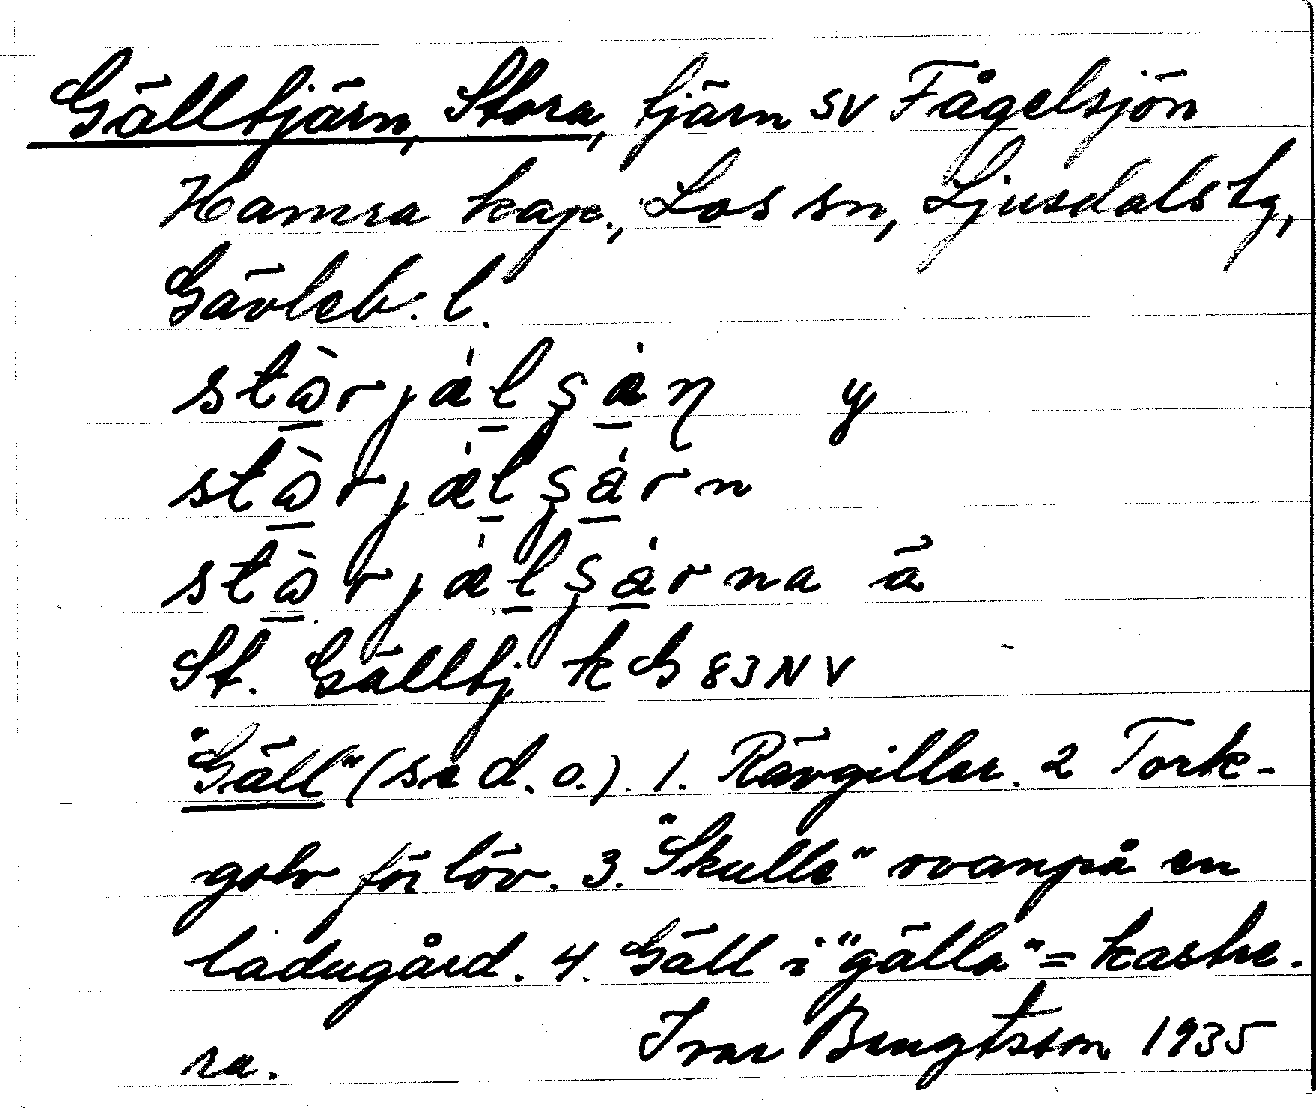 Gälltjärn, Stora, tjärn SV Fågelsjön
Hamra kap., Los sn, Ljusdals tg,
Gävleb. l.
St. Gälltj kG 83 NV
"Gäll" (se d. o.). 1. Rävgiller. 2 Tork-
golv för löv. 3. "Skulle" ovanpå en
ladugård. 4. Gäll i "gälla" = kastre-
ra. Ivar Bengtsson 1935